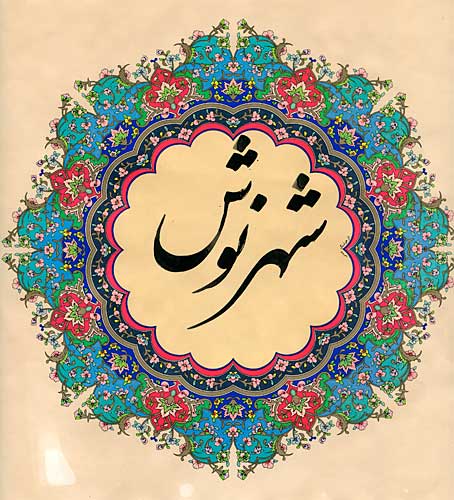 شهرنوش